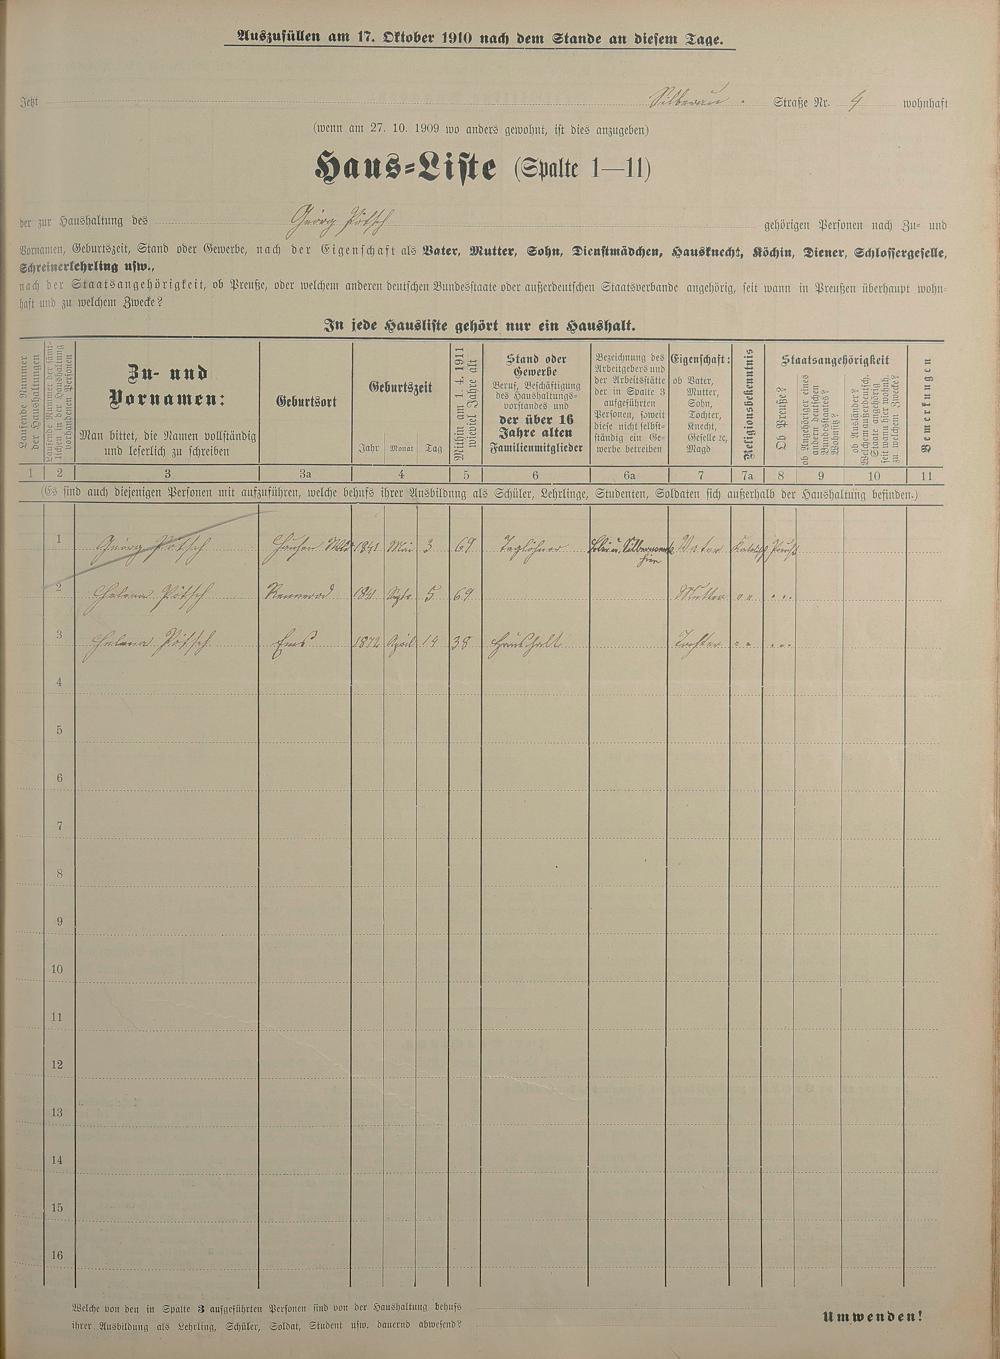 Auszufüllen am 17. Oktober 1910 nach dem Stande an diesem Tage.
Jetzt Silberau. Straße Nr. 4 wohnhaft
(wenn am 27. 10. 1909 wo anders gewohnt, ist dies anzugeben)
Haus=Liste (Spalte 1—11)
der zur Haushaltung des Georg Pötsch gehörigen Personen nach Zu= und
Vornamen, Geburtszeit, Stand oder Gewerbe, nach der Eigenschaft als Vater, Mutter, Sohn, Dienstmädchen, Hausknecht, Köchin, Diener, Schlossergeselle,
Schreinerlehrling usw.,
nach der Staatsangehörigkeit, ob Preuße, oder welchem anderen deutschen Bundesstaate oder außerdeutschen Staatsverbande angehörig, seit wann in Preußen überhaupt wohn=
haft und zu welchem Zwecke?
In jede Hausliste gehört nur ein Haushalt.
Laufende Nummer der Haushaltungen
Laufende Nummer der sämt=
lichen in der Haushaltung
vorhandenen Personen
Zu= und
Vornamen:
Man bittet, die Namen vollständig
und leserlich zu schreiben
Geburtsort
Geburtszeit
Jahr Monat Tag
Mithin am 1. 4. 1911
wieviel Jahre alt
Stand oder
Gewerbe
Beruf, Beschäftigung
des Haushaltungs=
vorstandes und
der über 16
Jahre alten
Familienmitglieder
Bezeichnung des
Arbeitgebers und
der Arbeitsstätte
der in Spalte 3
aufgeführten
Personen, soweit
diese nicht selbst=
ständig ein Ge=
werbe betreiben
Eigenschaft:
ob Vater,
Mutter,
Sohn,
Tochter,
Knecht,
Geselle ec,
Magd
Religionsbekenntnis
Staatsangehörigkeit
Ob Preuße?
ob Angehöriger eines
andern deutschen
Bundesstaates?
Wohnsitz?
ob Ausländer?
Welchem außerdeutsch.
Staate angehörig
seit wann hier wohnh.
zu welchem Zwecke?
Bemerkungen
1 2 3 3a 4 5 6 6a 7 7a 8 9 10 11
(Es sind auch diejenigen Personen mit aufzuführen, welche behufs ihrer Ausbildung als Schüler, Lehrlinge, Studenten, Soldaten sich außerhalb der Haushaltung befinden.)
1 Georg Pötsch Hausen 1841 Mai 3 69 Taglöhner Vater Kathol.
2 Helena Pötsch Rennerod 1841 Septr. 5 69 Mutter " " " "
3 Helena Pötsch Ems 1872 April 14 38 Haushalt Tochter " " " "
4
5
6
7
8
9
10
11
12
13
14
15
16
Welche von den in Spalte 3 aufgeführten Personen sind von der Haushaltung behufs
ihrer Ausbildung als Lehrling, Schüler, Soldat, Student usw. dauernd abwesend?
Umwenden!